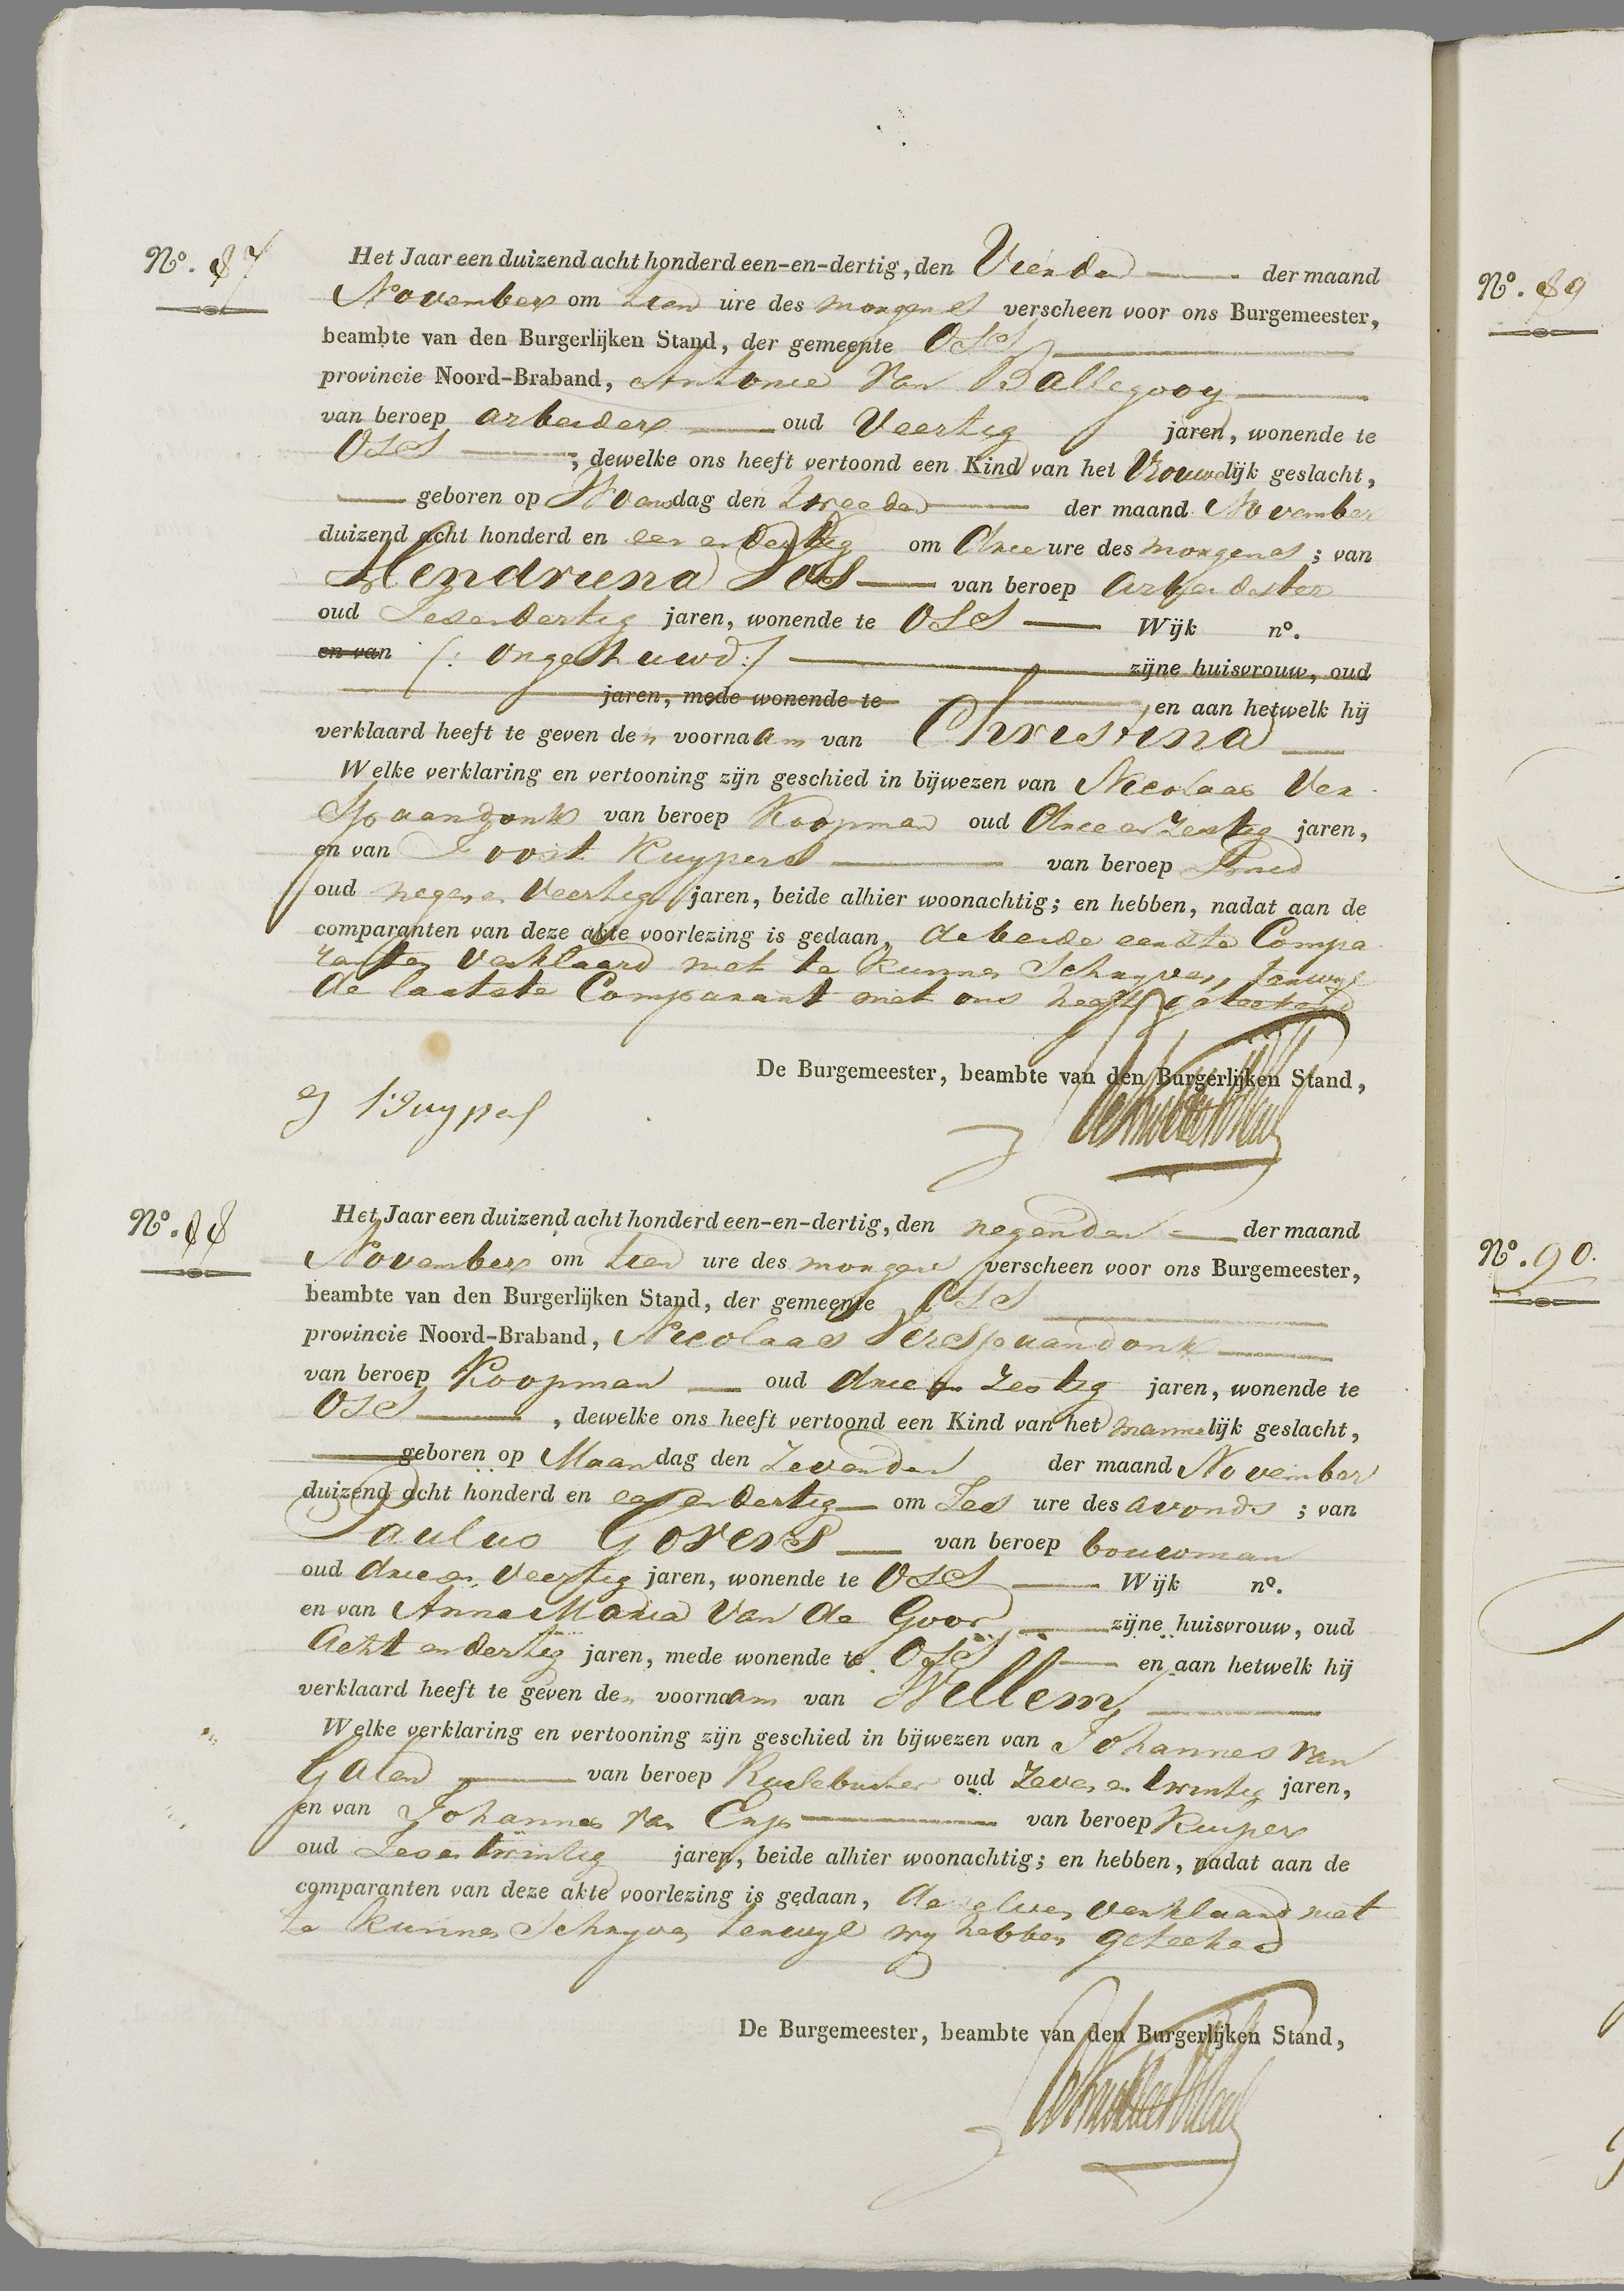 No. 87
Het Jaar een duizend acht honderd een-en-dertig, den Vierden der maand
November om tien ure des morgens verscheen voor ons Burgemeester,
beambte van den Burgerlijken Stand, der gemeente Oss
provincie Noord-Braband, Antonie Van Ballegooy
van beroep arbeider oud Veertig jaren, wonende te
Oss, dewelke ons heeft vertoond een Kind van het Vrouwelijk geslacht,
geboren op Woensdag den tweeden der maand November
duizend acht honderd en een en dertig om drie ure des morgens; van
Hendriena Vos van beroep arbeidster
oud Zes en dertig jaren, wonende te Oss Wijk no.
en van /: ongehuwd :/ zijne huisvrouw, oud
jaren, mede wonende te en aan hetwelk hij
verklaard heeft te geven den voornaam van Christina
Welke verklaring en vertooning zijn geschied in bijwezen van Nicolaas Ver
Spaandonk van beroep Koopman oud drie en Zestig jaren,
en van Joost Kuypers van beroep Smid
oud negen en Veertig jaren, beide alhier woonachtig; en hebben, nadat aan de
comparanten van deze akte voorlezing is gedaan, de beide eerste Compa
ranten Verklaard niet te kunnen Schryven, terwyl
de laatste Comparant met ons heeft geteekend
De Burgemeester, beambte van den Burgerlijken Stand,
J Kuypers
No. 88
Het Jaar een duizend acht honderd een-en-dertig, den negenden der maand
November om tien ure des morgens verscheen voor ons Burgemeester,
beambte van den Burgerlijken Stand, der gemeente Oss
provincie Noord-Braband, Nicolaas VerSpaandonk
van beroep Koopman oud drie en Zestig jaren, wonende te
Oss, dewelke ons heeft vertoond een Kind van het mannelijk geslacht,
geboren op Maandag den Zevenden der maand November
duizend acht honderd en een en dertig om Zes ure des avonds; van
Paulus Govers van beroep bouwman
oud drie en Veertig jaren, wonende te Oss Wijk no.
en van Anna Maria Van de Goor zijne huisvrouw, oud
Acht en dertig jaren, mede wonende te Oss en aan hetwelk hij
verklaard heeft te geven den voornaam van Willem
Welke verklaring en vertooning zijn geschied in bijwezen van Johannes Van
Galen van beroep oud Zeven en twintig jaren,
en van Johannes van Erp van beroep Kuiper
oud Zes en twintig jaren, beide alhier woonachtig; en hebben, nadat aan de
comparanten van deze akte voorlezing is gedaan, dezelven verklaard niet
te kunnen Schryven terwyl wy hebben geteekend
De Burgemeester, beambte van den Burgerlijken Stand,
No. 89
No. 90.